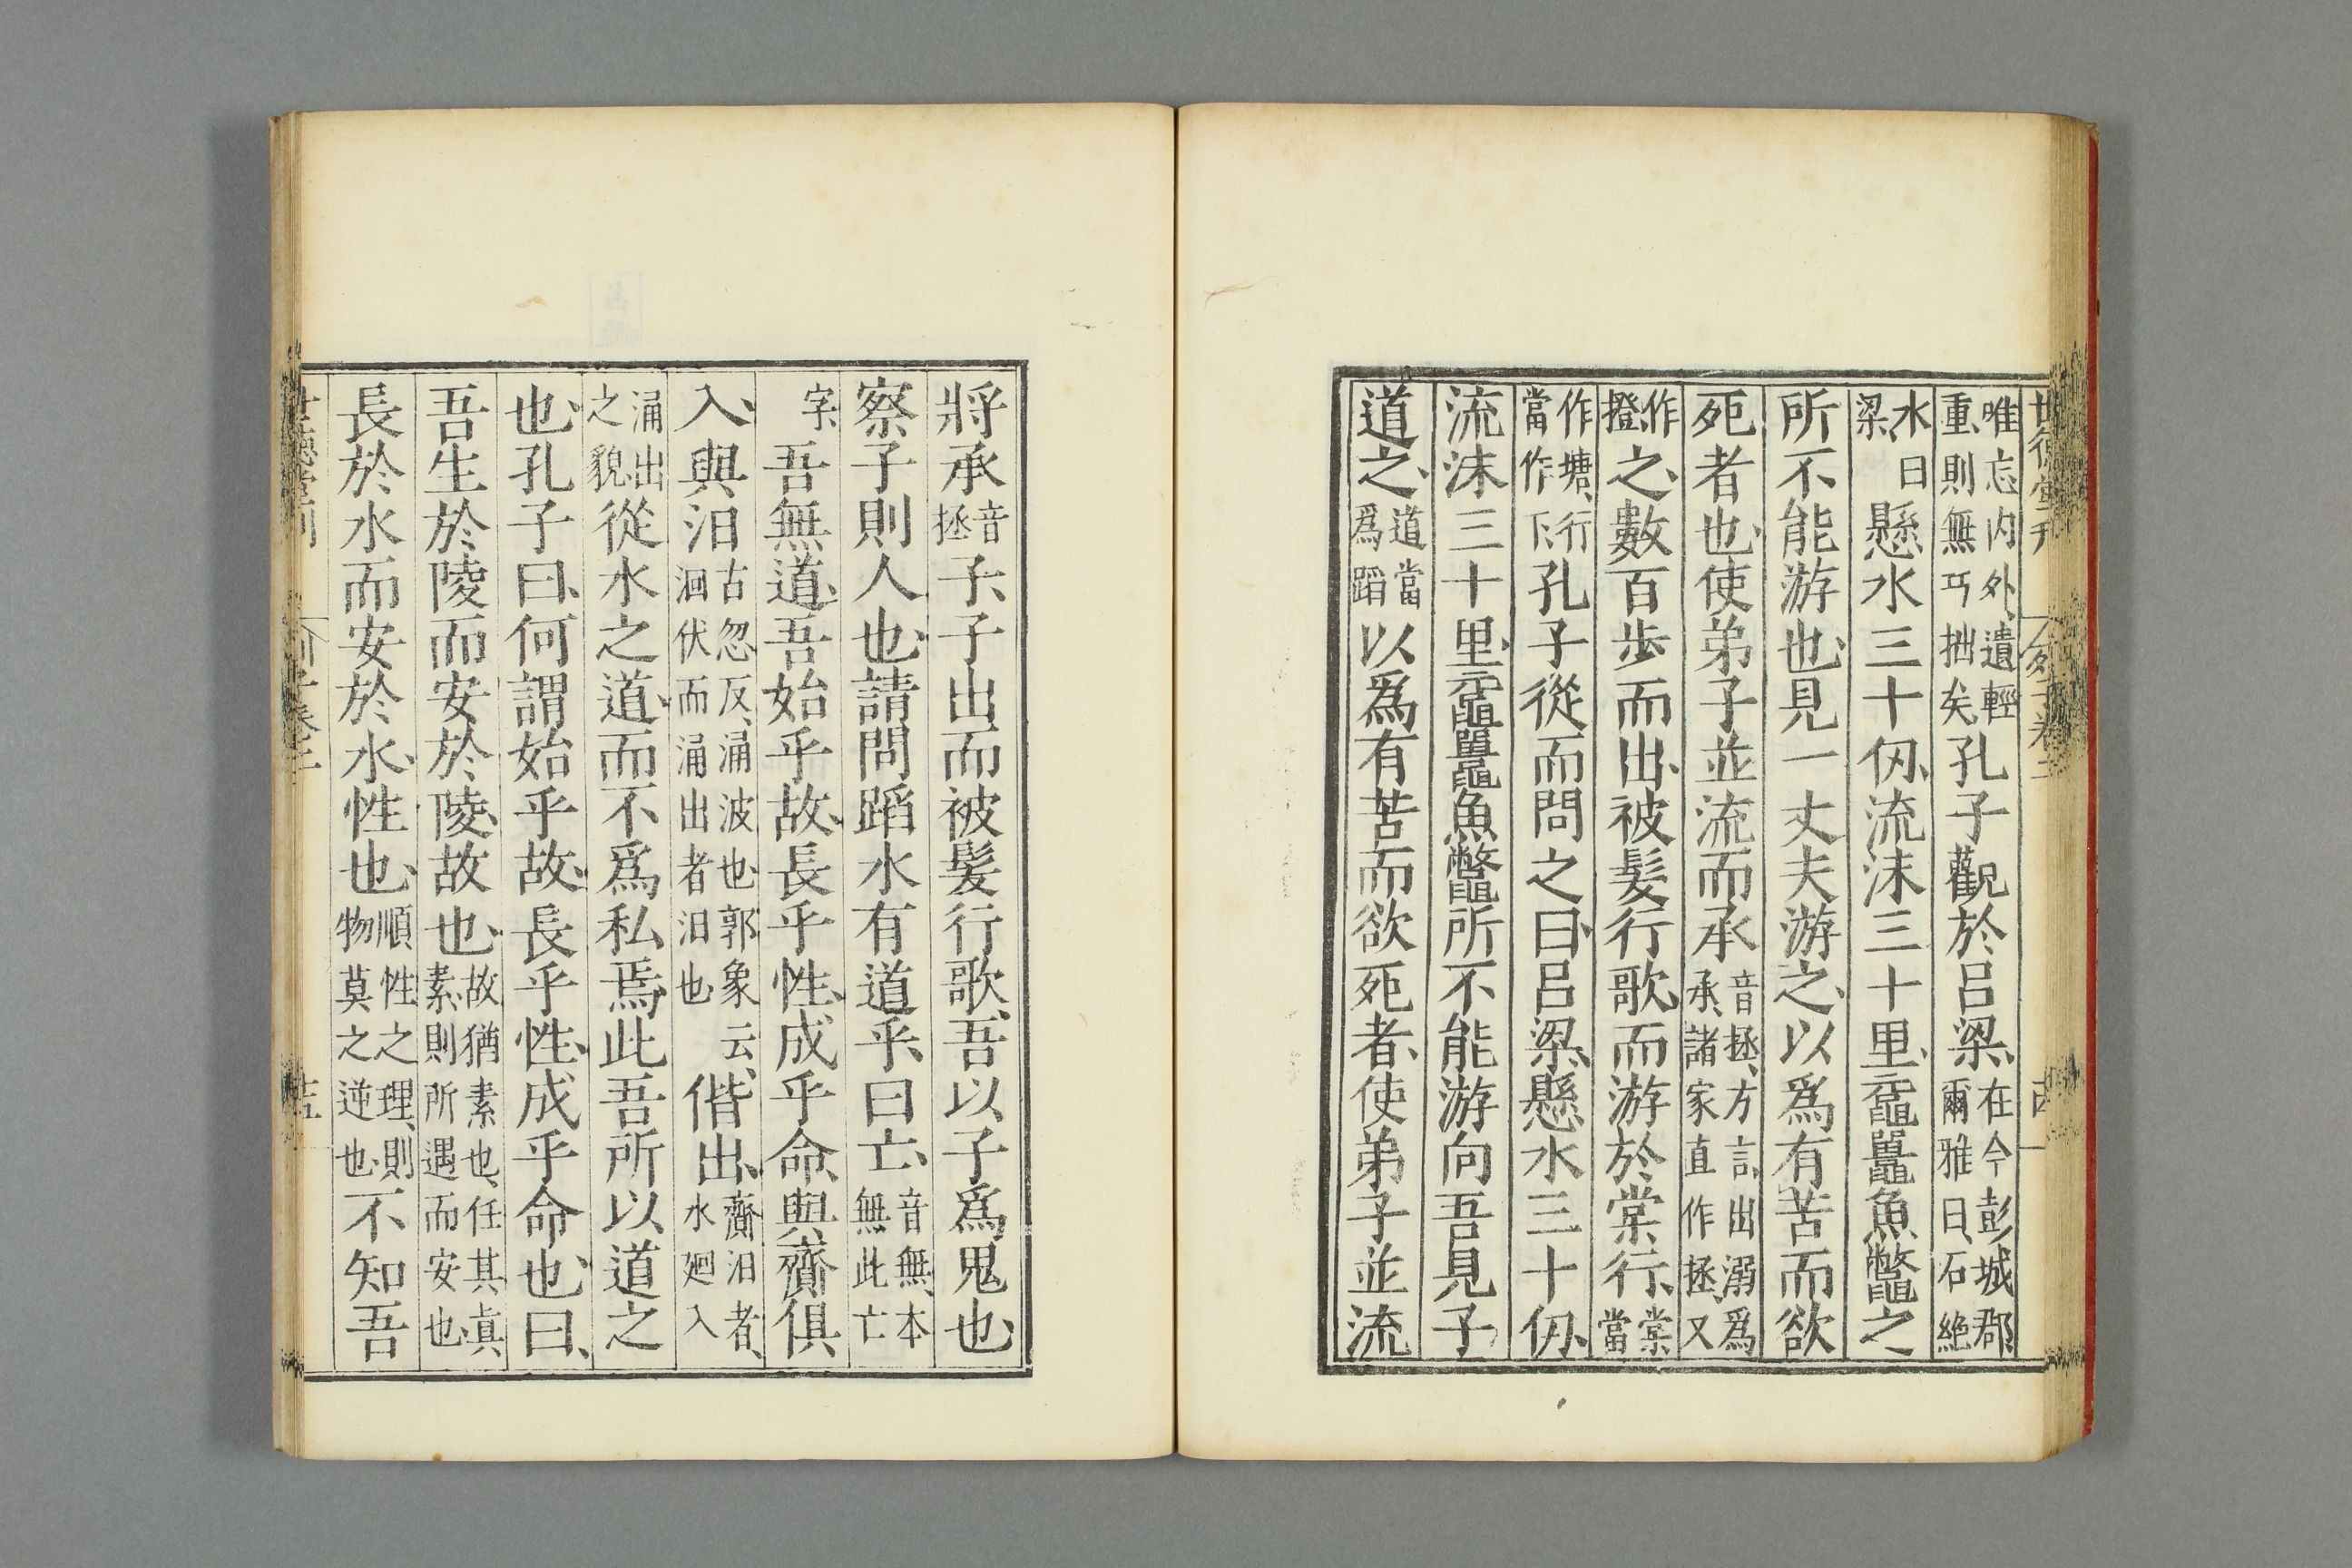 世德堂刊 列子卷二 十四
唯忘内外、遺輕重、則無巧拙矣、孔子觀於呂梁、在今彭城郡、爾雅曰、石絶
水曰梁、懸水三十仞、流沫三十里、黿鼉魚鼈之
所不能游也、見一丈夫游之、以爲有苦而欲
死者也、使弟子並流而承音拯、方言、出溺爲承、諸家直作拯、又
作撜、之、數百歩而出、被髮行歌、而游於棠行、棠當
作塘、行當作下、孔子從而問之、曰、呂梁、懸水三十仞、
流沫三十里、黿鼉魚鼈所不能游、向吾見子
道之、道當爲蹈以爲有苦而欲死者、使弟子並流
將承音拯子、子出而被髮行歌、吾以子爲鬼也、
察子則人也、請問蹈水有道乎、曰亡、音無、本無此亡
字、吾無道、吾始乎故、長乎性、成乎命、與齎俱
入、與汩古忽反、涌波也、郭象云、洄伏而涌出者汩也、偕出、齎汩者、水廻入
涌出之貌從水之道、而不爲私焉、此吾所以道之
也、孔子曰、何謂始乎故、長乎性、成乎命也、曰、
吾生於陵而安於陵、故也、故猶素也、任其眞素、則所遇而安也、
長於水而安於水、性也、順性之理、則物莫之逆也、不知吾
世德堂刊 列子卷二 十五